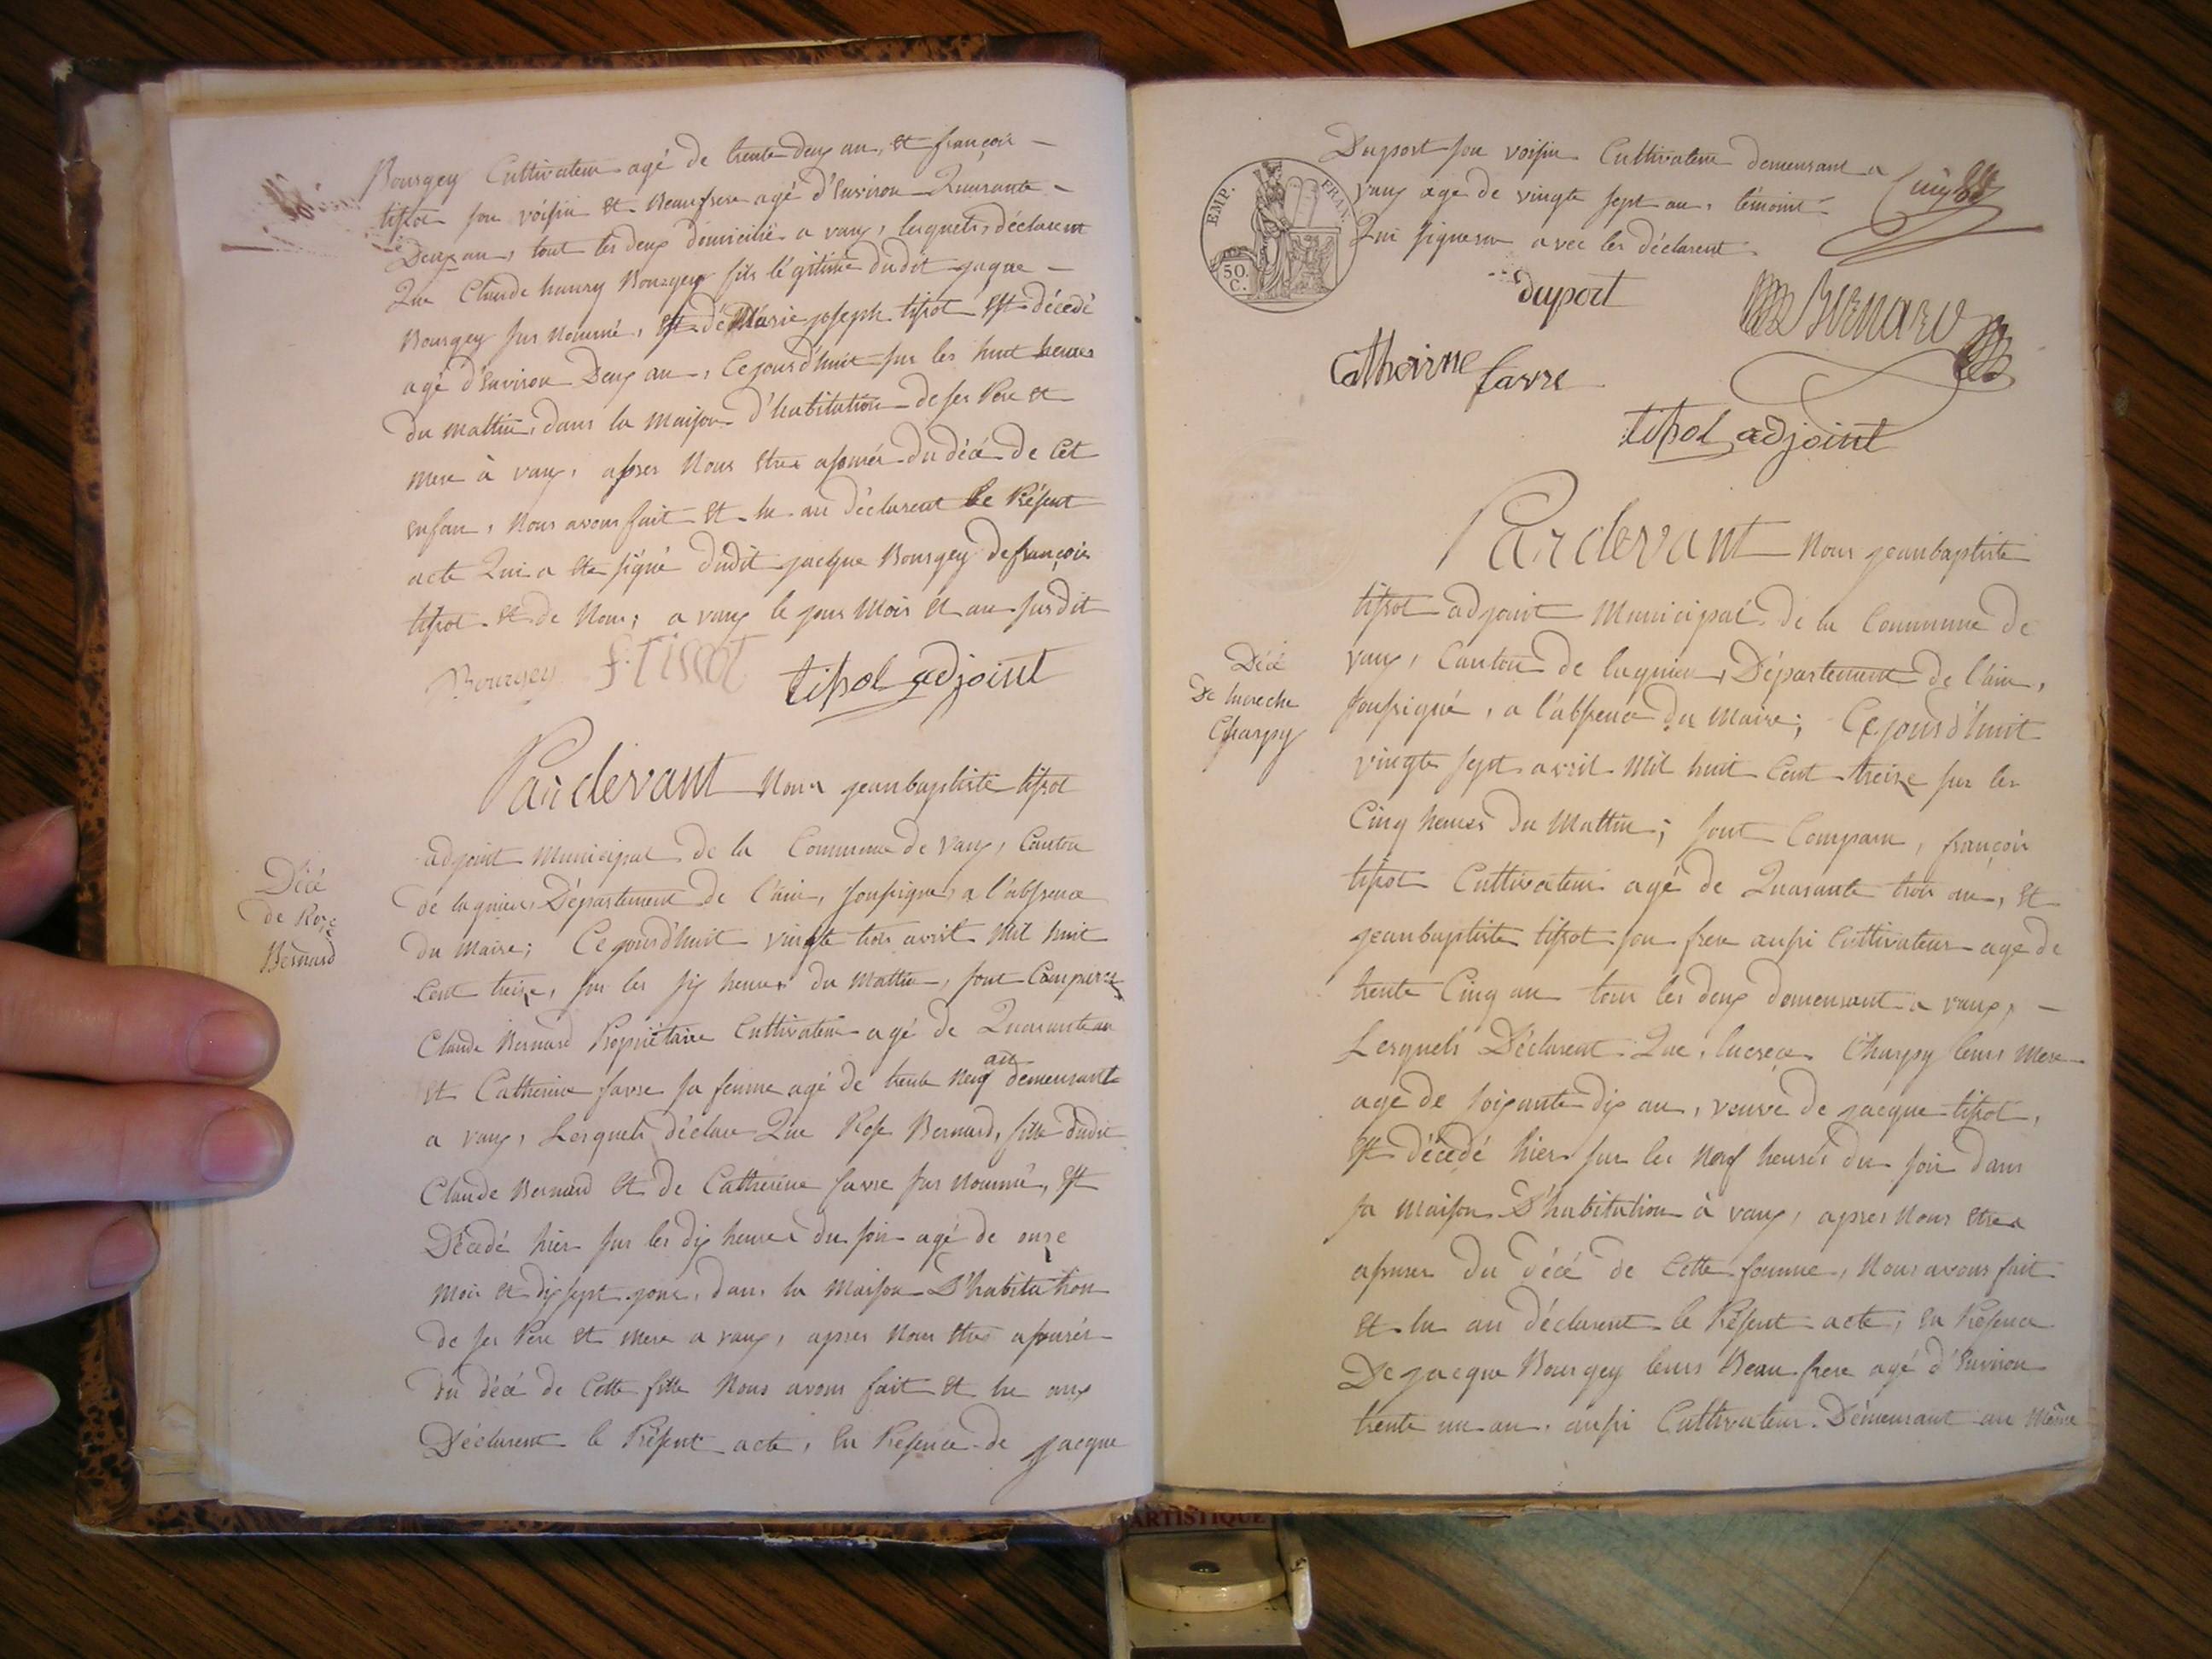 Bourgey Cultivateur agé de trente deux an, et françois -
tissot son voisin et Beaufrere agé d'Environ Quarante -
Deux an, tout les deux domicilié a vaux, lesquels, déclarent
Que Claude hanry Bourgey fils légitime dudit jaque -
Bourgey sus nommé, et de Marie joseph tissot est décedé
agé d'Environ Deux an, Cejourd'huit sur les huit heures
du mattin, dans la maison d'habitation de ses Pere et
mere à vaux, apres Nous etre assurés du décé de Cet
enfan, Nous avons fait et lu au déclarent le Présent
acte Qui a ete signé dudit jacque Bourgey de françois
tissot et de Nous; a vaux le jour Mois et an susdit
Bourgey f. Tissot tissot adjoint
Pardevant Nous jeanbaptiste tissot
adjoint Municipal de la Commune de Vaux, Canton
de lagnieu, Département de l'ain, soussigné, a l'abssence
du Maire; Cejourd'huit vingte trois avril Mil huit
Cent treize, sur les six heures du Mattin, sont Comparu
Claude Bernard Propriétaire Cultivateur agé de Quarante an
an
et Catherine favre sa femme agé de trente neuf demeurant
a vaux, Lesquels déclare Que Rose Bernard, fille dudit
Claude Bernard et de Catherine favre sus nommé, est
Décedé hier sur les dix heures du soir agé de onze
Mois et dix sept jour, dans la Maison D'habitation
de ses Pere et mere a vaux, apres Nous etre assurés
du décé de Cette fille Nous avons fait et lu aux
Déclarent le Présent acte, En Presence de Jacque
Décé
de Roze
Bernard
Duport son voisin Cultivateur demeurant a
vaux age de vingte sept an, témoint
Qui signeron avec les déclarent
EMP. FRAN.
50.
C.
duport
Bernard
Catherine favre
tissot adjoint
Pardevant Nous jeanbaptiste
tissot adjoint Municipal de la Commune de
vaux, Canton de lagnieu, Département de l'ain,
soussigné, a l'abssence du Maire; Cejourd'huit
vingte sept avril Mil huit Cent treize sur les
Cinq heures du Mattin; sont Comparu, françois
tissot Cultivateur agé de Quarante trois an, et
jeanbaptiste tissot son frere aussi Cultivateur age de
trente Cinq an tous les deux demeurant a vaux, -
Lesquels Déclarent Que, lucrece Charpy leurs mere
age de soixante dix an, veuve de jacque tissot,
est décedé hier sur les Neuf heures du soir dans
sa maison D'habitation à vaux, apres Nous etre
assurer du décé de Cette femme, Nous avons fait
et lu au déclarent le Présent acte, En Présence
De jacque Bourgey leurs Beau frere agé d'Environ
trente un an, aussi Cultivateur Demeurant au Même
Décé
De lucreche
Charpy
ARTISTIQUE